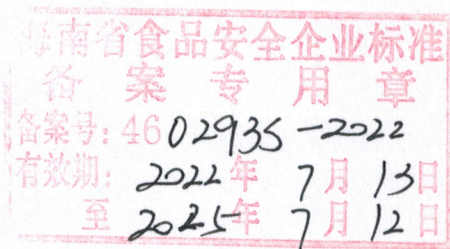 海南省食品安全企业标准
备案专用章
备案号：46 02935-2022
有效期：2022年7月13日
至2025年7月12日